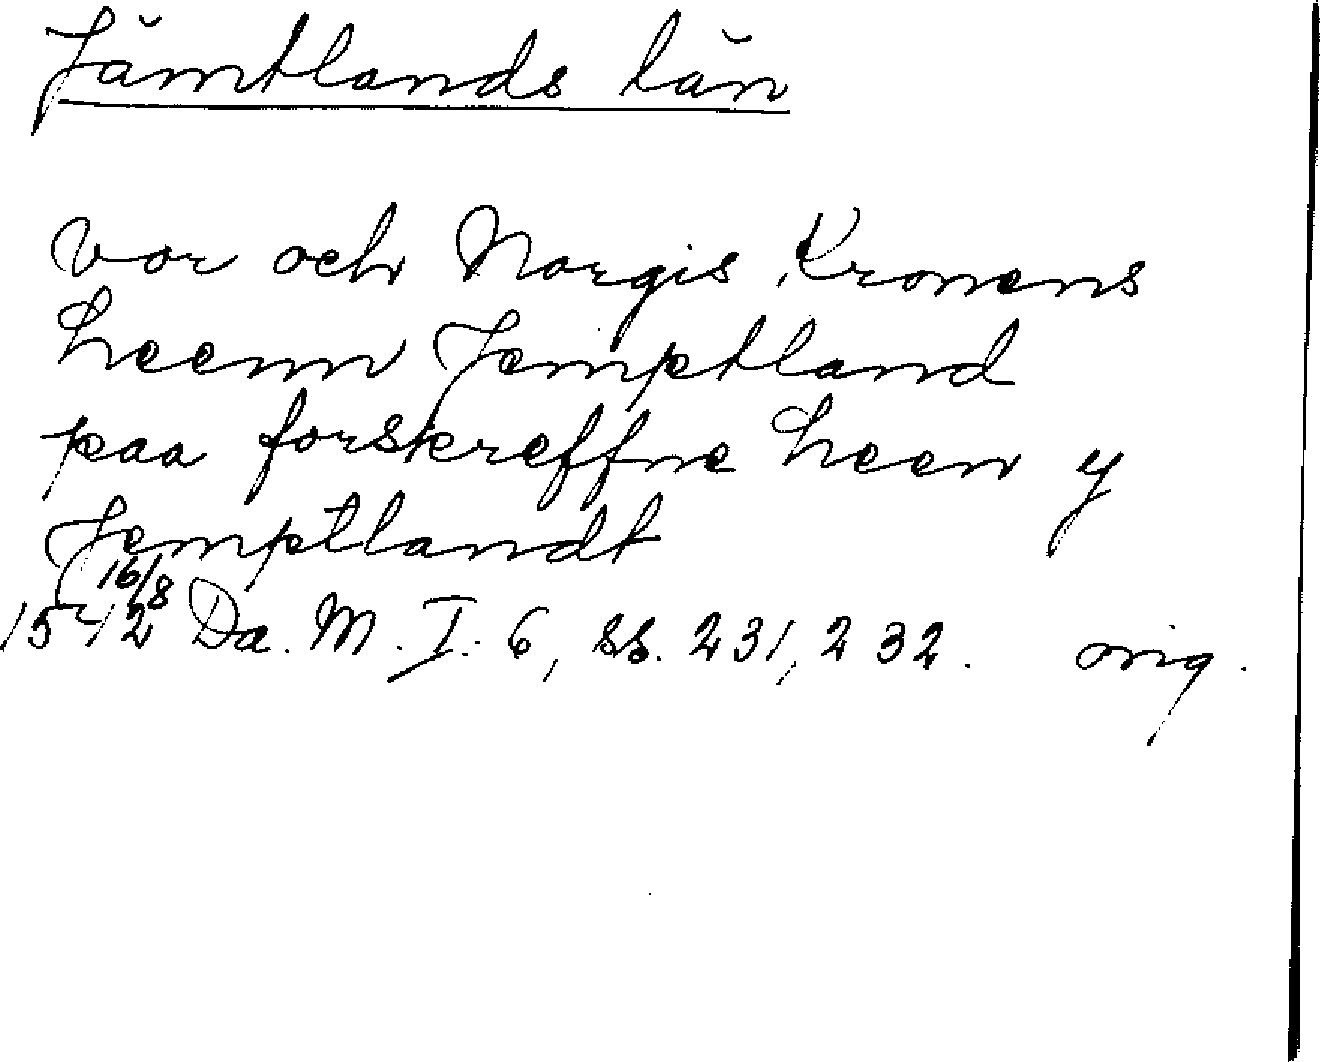 Jämtlands län
vor och Norgis Kronens
heenn Jemptland
paa forskreffne heen y
Jemptlandt
1542 16/8 Da. M. I. 6, ss. 231, 232. orig.